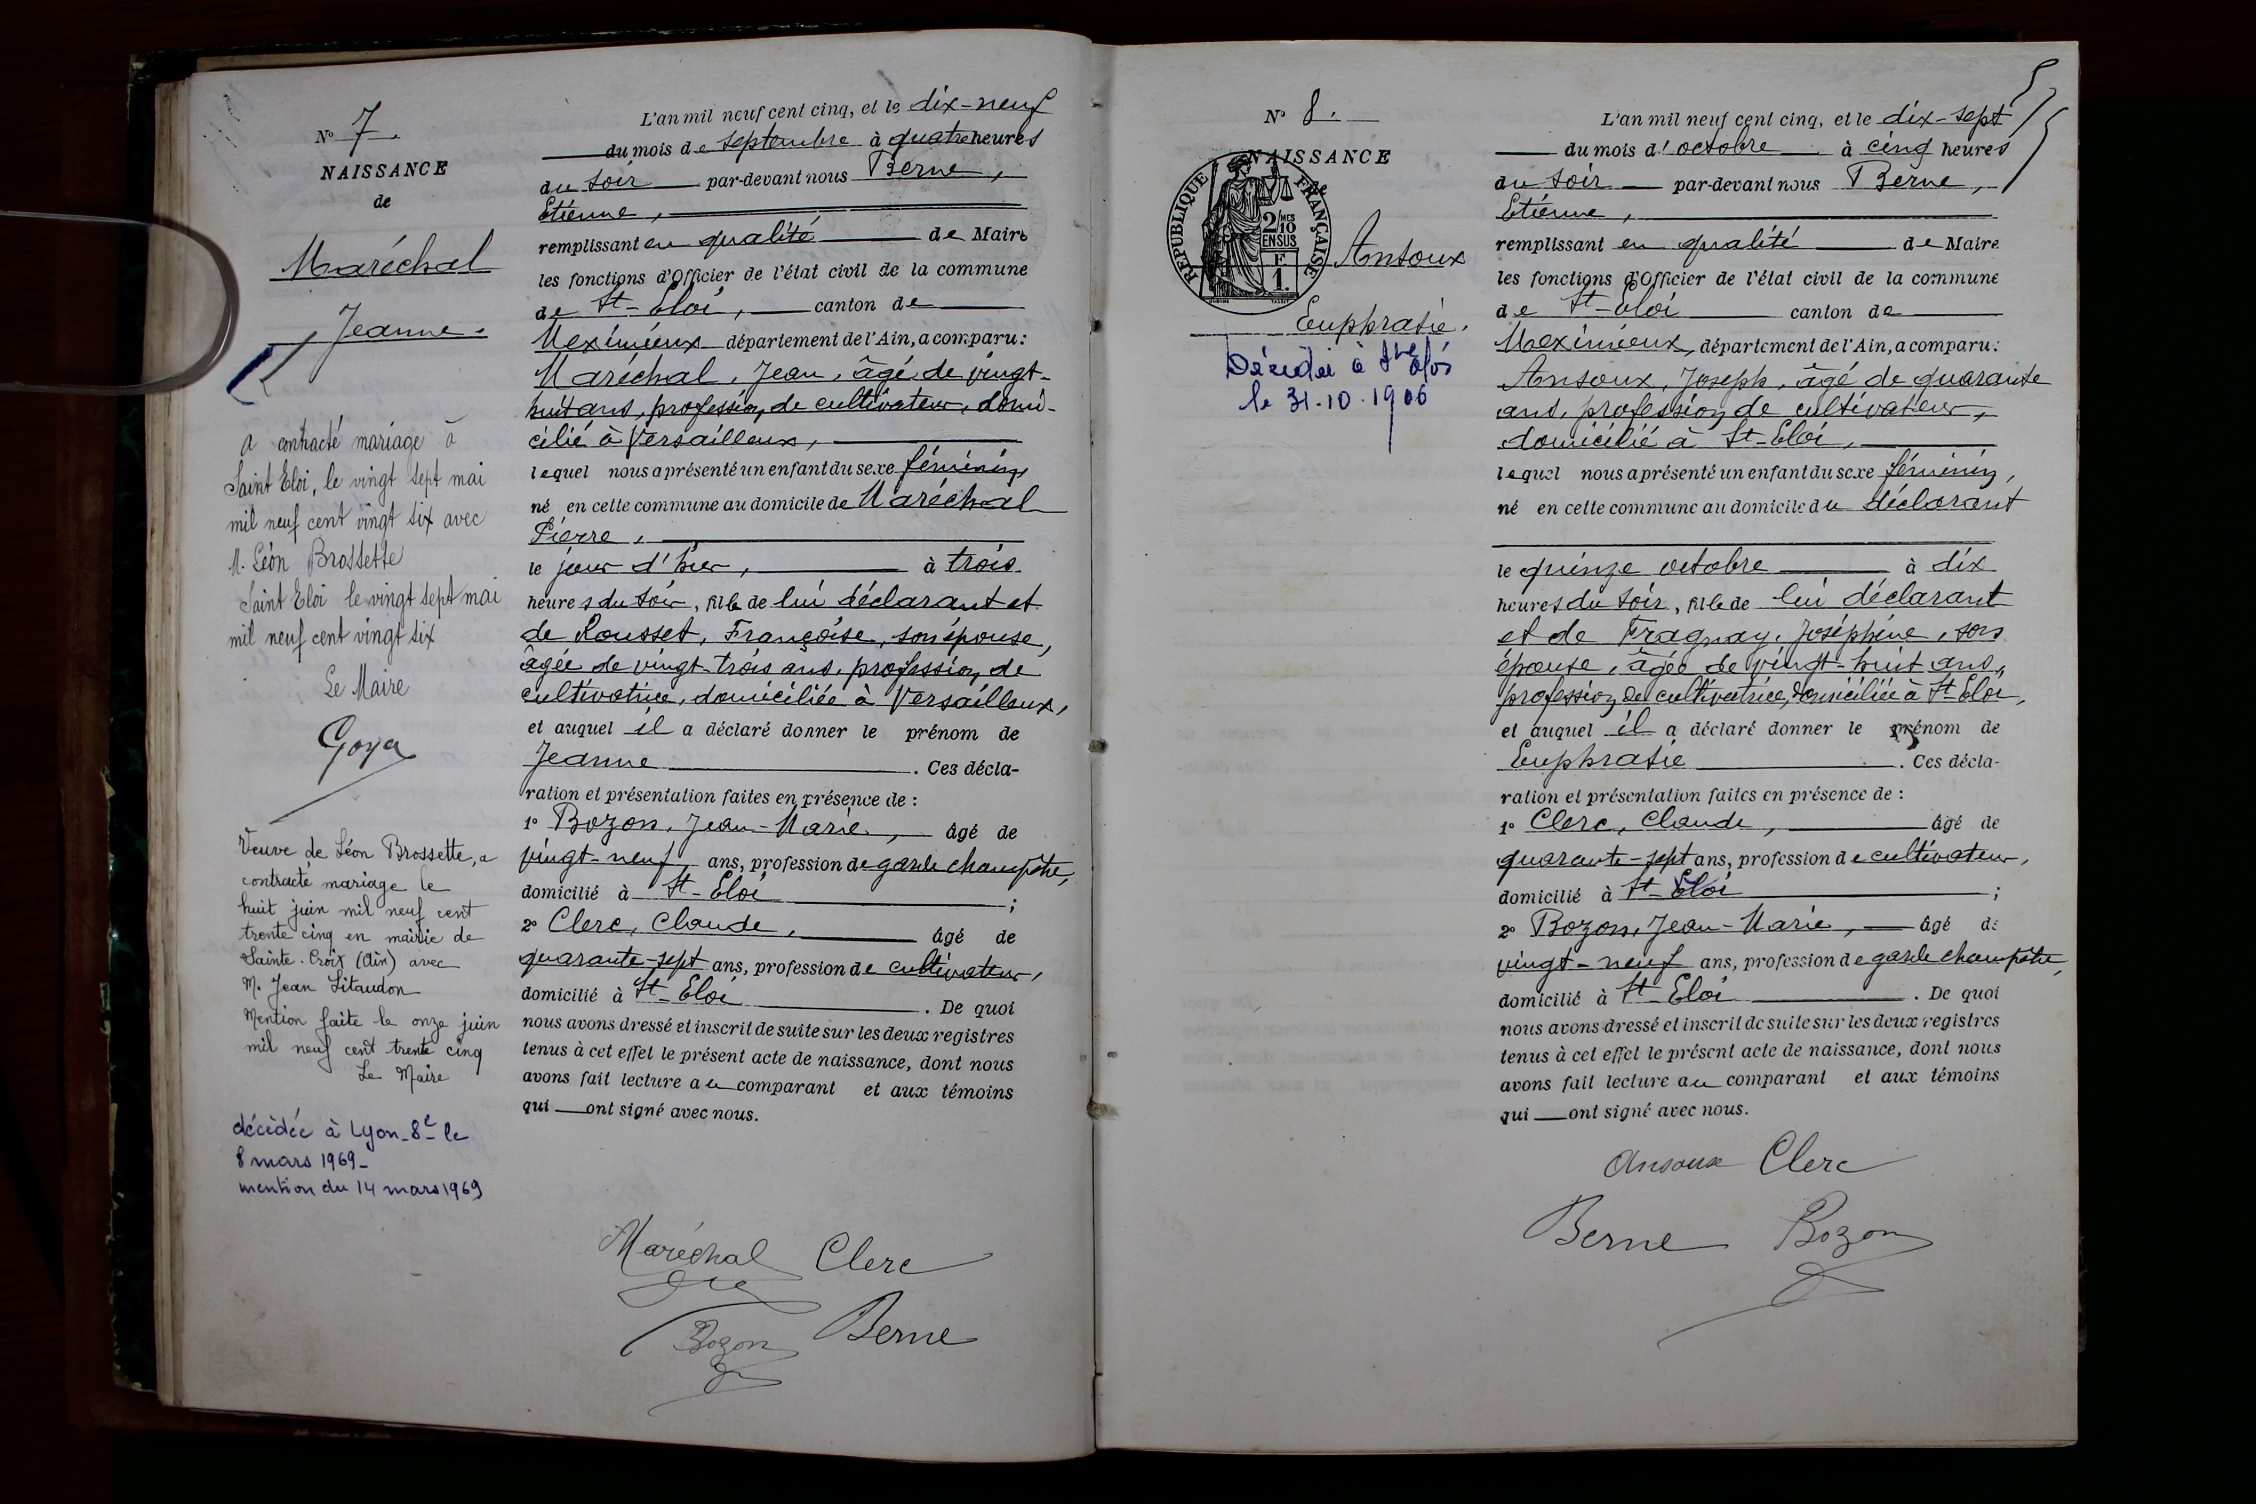 N° 7.
NAISSANCE
de
Maréchal
Jeanne.
a contracté mariage à
Saint Eloi, le vingt sept mai
mil neuf cent vingt six avec
M. Léon Brossette
Saint Eloi le vingt sept mai
mil neuf cent vingt six
Le Maire
Goya
Veuve de Léon Brossette, a
contracté mariage le
huit juin mil neuf cent
trente cinq en mairie de
Sainte-Croix (Ain) avec
M. Jean Litaudon
Mention faite le onze juin
mil neuf cent trente cinq
Le Maire
décédée à Lyon-8e le
8 mars 1969-
mention du 14 mars 1969
L'an mil neuf cent cinq, et le dix-neuf
du mois de septembre à quatre heures
du soir par-devant nous Berne,
Etienne,
remplissant en qualité de Maire
les fonctions d'Officier de l'état civil de la commune
de St-Eloi, canton de
Meximieux département de l'Ain, a comparu:
Maréchal, Jean, âgé de vingt-
huit ans, profession de cultivateur, domi-
cilié à Versailleux,
lequel nous a présenté un enfant du sexe féminin
né en cette commune au domicile de Maréchal
Pierre,
le jour d'hier, à trois
heures du soir, fille de lui déclarant et
de Rousset, Françoise, son épouse,
âgée de vingt-trois ans, profession de
cultivatrice, domiciliée à Versailleux,
et auquel il a déclaré donner le prénom de
Jeanne . Ces décla-
ration et présentation faites en présence de :
1° Bozon, Jean-Marie, âgé de
vingt-neuf ans, profession de garde champêtre,
domicilié à St-Eloi ;
2° Clerc, Claude, âgé de
quarante-sept ans, profession de cultivateur,
domicilié à St-Eloi . De quoi
nous avons dressé et inscrit de suite sur les deux registres
tenus à cet effet le présent acte de naissance, dont nous
avons fait lecture au comparant et aux témoins
qui ont signé avec nous.
Maréchal Clerc
Bozon Berne
N° 8.
NAISSANCE
de
REPUBLIQUE FRANÇAISE
2/10 MES
EN SUS
F
1.
Ansoux
Euphrasie.
Décédée à St Eloi
le 31.10.1906
L'an mil neuf cent cinq, et le dix-sept
du mois d'octobre à cinq heures
du soir par-devant nous Berne,
Etienne,
remplissant en qualité de Maire
les fonctions d'Officier de l'état civil de la commune
de St-Eloi canton de
Meximieux, département de l'Ain, a comparu:
Ansoux, Joseph, âgé de quarante
ans, profession de cultivateur,
domicilié à St-Eloi,
lequel nous a présenté un enfant du sexe féminin,
né en cette commune au domicile du déclarant
le quinze octobre à dix
heures du soir, fille de lui déclarant
et de Fragnay, Joséphine, son
épouse, âgée de vingt-huit ans,
profession de cultivatrice, domiciliée à St-Eloi,
et auquel il a déclaré donner le prénom de
Euphrasie . Ces décla-
ration et présentation faites en présence de :
1° Clerc, Claude, âgé de
quarante-sept ans, profession de cultivateur,
domicilié à St-Eloi ;
2° Bozon, Jean-Marie, âgé de
vingt-neuf ans, profession de garde champêtre,
domicilié à St-Eloi . De quoi
nous avons dressé et inscrit de suite sur les deux registres
tenus à cet effet le présent acte de naissance, dont nous
avons fait lecture au comparant et aux témoins
qui ont signé avec nous.
Ansoux Clerc
Berne Bozon